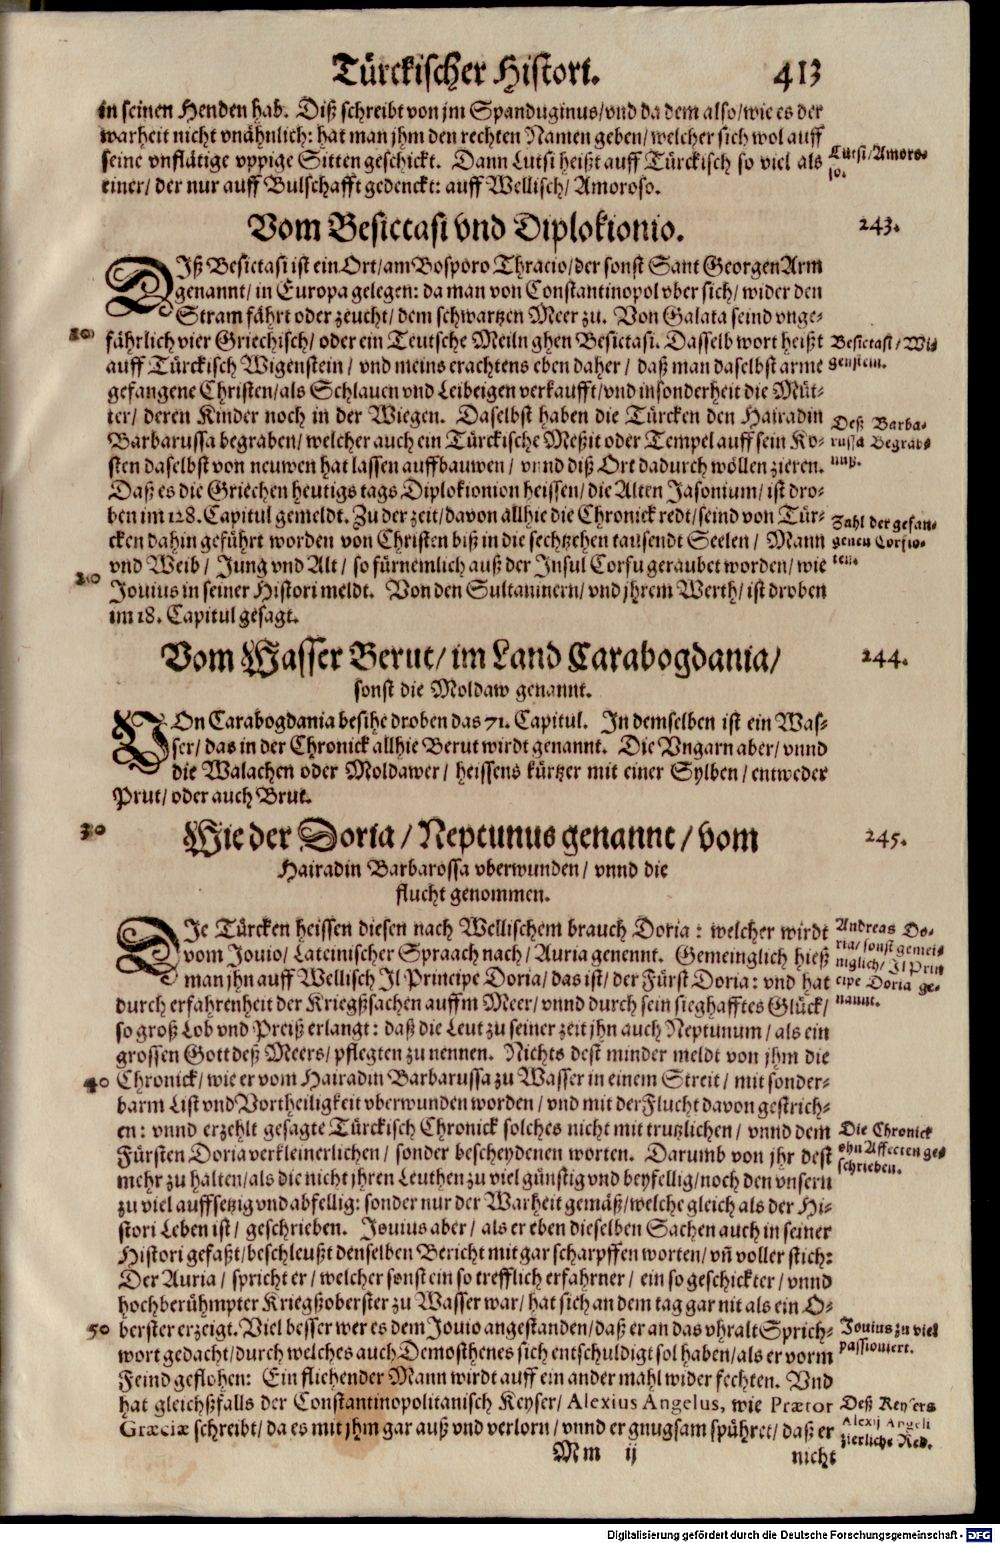 Türckischer Histori. 413
in seinen Henden hab. Diß schreibt von jm Spanduginus/vnd da dem also/wie es der
warheit nicht vnähnlich: hat man jhm den rechten Namen geben/welcher sich wol auff
seine vnflätige vppige Sitten geschickt. Dann Lutsi heißt auff Türckisch so viel als
einer/ der nur auff Bulschafft gedenckt: auff Wellisch/ Amoroso.
Lutsi/Amoro-
so.
Vom Besictasi vnd Diplokionio.
243.
DIß Besictasi ist ein Ort/am Bosporo Thracio/der sonst Sant Georgen Arm
genannt/ in Europa gelegen: da man von Constantinopol vber sich/ wider den
Stram fährt oder zeucht/ dem schwartzen Meer zu. Von Galata seind vnge-
10
fährlich vier Griechisch/ oder ein Teutsche Meiln ghen Besictasi. Dasselb wort heißt
auff Türckisch Wigenstein/ vnd meins erachtens eben daher/ daß man daselbst arme
gefangene Christen/als Schlauen vnd Leibeigen verkaufft/vnd insonderheit die Müt-
ter/ deren Kinder noch in der Wiegen. Daselbst haben die Türcken den Hairadin
Barbarussa begraben/welcher auch ein Türckische Meßit oder Tempel auff sein Ko-
sten daselbst von neuwen hat lassen auffbauwen/ vnnd diß Ort dadurch wöllen zieren.
Daß es die Griechen heutigs tags Diplokionion heissen/die Alten Jasonium/ist dro-
ben im 128. Capitul gemeldt. Zu der zeit/davon allhie die Chronick redt/seind von Tür-
cken dahin geführt worden von Christen biß in die sechtzehen tausendt Seelen/ Mann
vnd Weib/ Jung vnd Alt/ so fürnemlich auß der Insul Corfu geraubet worden/ wie
20
Jouius in seiner Histori meldt. Von den Sultaninern/vnd jhrem Werth/ist droben
im 18. Capitul gesagt.
Besictasi/Wi-
genstein.
Deß Barba-
russa Begräb-
nuß.
Zahl der gefan-
genen Corfio-
ten.
Vom Wasser Berut/im Land Carabogdania/
sonst die Moldaw genannt.
244.
VOn Carabogdania besihe droben das 71. Capitul. In demselben ist ein Was-
ser/das in der Chronick allhie Berut wirdt genannt. Die Vngarn aber/vnnd
die Walachen oder Moldawer/ heissens kürtzer mit einer Sylben/entweder
Prut/oder auch Brut.
30
Wie der Doria/Neptunus genannt/vom
Hairadin Barbarossa vberwunden/ vnnd die
flucht genommen.
245.
DIe Türcken heissen diesen nach Wellischem brauch Doria: welcher wirdt
vom Jouio/Lateinischer Spraach nach/Auria genennt. Gemeinglich hieß
man jhn auff Wellisch Il Principe Doria/das ist/der Fürst Doria: vnd hat
durch erfahrenheit der Kriegßsachen auffm Meer/vnnd durch sein sieghafftes Glück/
so groß Lob vnd Preiß erlangt: daß die Leut zu seiner zeit jhn auch Neptunum/als ein
grossen Gott deß Meers/pflegten zu nennen. Nichts dest minder meldt von jhm die
40
Chronick/wie er vom Hairadin Barbarussa zu Wasser in einem Streit/mit sonder-
barm List vnd Vortheiligkeit vberwunden worden/vnd mit der Flucht davon gestrich-
en: vnnd erzehlt gesagte Türckisch Chronick solches nicht mit trutzlichen/ vnnd dem
Fürsten Doria verkleinerlichen/ sonder bescheydenen worten. Darumb von jhr dest
mehr zu halten/als die nicht jhren Leuthen zu viel günstig vnd beyfellig/noch den vnsern
zu viel auffsetzig vnd abfellig: sonder nur der Warheit gemäß/welche gleich als der Hi-
stori Leben ist/ geschrieben. Jouius aber/ als er eben dieselben Sachen auch in seiner
Histori gefaßt/beschleußt denselben Bericht mit gar scharpffen worten/vñ voller stich:
Der Auria/ spricht er/welcher sonst ein so trefflich erfahrner/ ein so geschickter/ vnnd
hochberühmpter Kriegßoberster zu Wasser war/hat sich an dem tag gar nit als ein O-
50
berster erzeigt. Viel besser wer es dem Jouio angestanden/daß er an das vhralt Sprich-
wort gedacht/durch welches auch Demosthenes sich entschuldigt sol haben/als er vorm
Feind geflohen: Ein fliehender Mann wirdt auff ein ander mahl wider fechten. Vnd
hat gleichßfalls der Constantinopolitanisch Keyser/ Alexius Angelus, wie Prætor
Græciæ schreibt/da es mit jhm gar auß vnd verlorn/vnnd er gnugsam spühret/daß er
Andreas Do-
ria/sonst gemei-
niglich/Il Prin
cipe Doria ge-
nannt.
Die Chronick
ohn Affecten ge-
schrieben.
Jouius zu viel
passioniert.
Deß Keysers
Alexij Angeli
zierliche Red.
Mm ij nicht
Digitalisierung gefördert durch die Deutsche Forschungsgemeinschaft - DFG